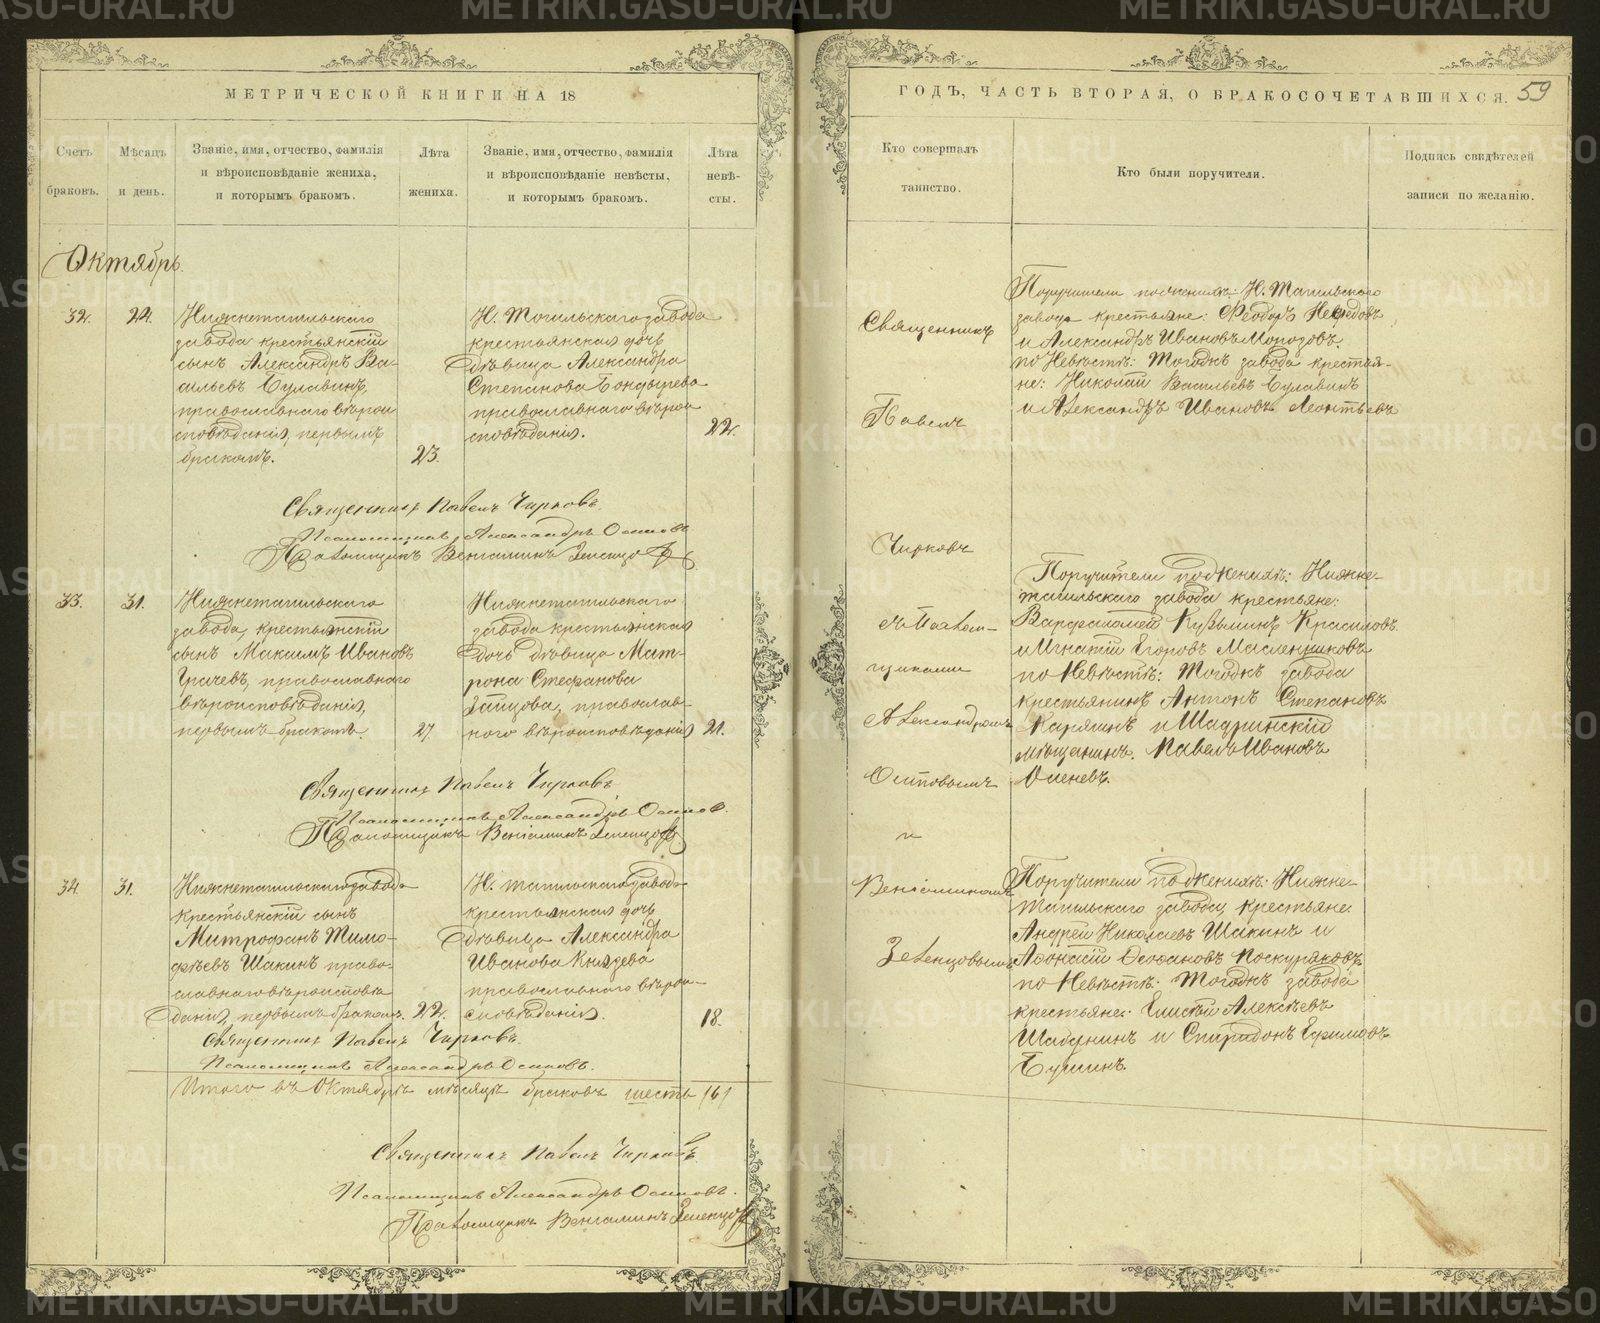 МЕТРИЧЕСКОЙ КНИГИ НА 18
Счетъ браковъ.
Мѣсяцъ и день.
Званіе, имя, отчество, фамилія
и вѣроисповѣданіе жениха,
и которымъ бракомъ.
Лѣта жениха.
Званіе, имя, отчество, фамилія
и вѣроисповѣданіе невѣсты,
и которымъ бракомъ.
Лѣта невѣ-
сты.
Октябрь.
32.
22.
Нижнетагильскаго
завода крестьянскій
сынъ Александръ Ва-
сильевъ Булавинъ,
православнаго вѣрои
сповѣданія, первымъ
бракомъ.
23.
Н. Тагильскаго завода
крестьянская дочь
дѣвица Александра
Степанова Бондырева
православнаго вѣрои
сповѣданія.
22.
Священникъ Павелъ Чирковъ.
Псаломщикъ Александръ Осиповъ
Псаломщикъ Веніаминъ Зеленцовъ
33.
31.
Нижнетагильскаго
завода, крестьянскій
сынъ Максимъ Ивановъ
Грачевъ, православнаго
вѣроисповѣданія,
первымъ бракомъ.
27.
Нижнетагильскаго
завода крестьянская
дочь дѣвица Мат-
рона Стефанова
Зайцова, православ-
наго вѣроисповѣданія
21.
Священникъ Павелъ Чирковъ
Псаломщикъ Александръ Осиповъ.
Псаломщикъ Веніаминъ Зеленцовъ
34.
31.
Нижнетагильскаго завода
крестьянскій сынъ
Митрофанъ Тимо-
фѣевъ Шакинъ право-
славнаго вѣроисповѣ
данія, первымъ бракомъ.
22.
Н. тагильскаго завода
крестьянская дочь
дѣвица Александра
Иванова Князева
православнаго вѣрои-
сповѣданія.
18.
Священникъ Павелъ Чирковъ.
Псаломщикъ Александръ Осиповъ.
Итого въ Октябрѣ мѣсяцѣ браковъ шесть /6/
Священникъ Павелъ Чирковъ
Псаломщикъ Александръ Осиповъ.
Псаломщикъ Веніаминъ Зеленцовъ
ГОДЪ, ЧАСТЬ ВТОРАЯ, О БРАКОСОЧЕТАВШИХСЯ.
59
Кто совершалъ
таинство.
Кто были поручители.
Подпись свидѣтелей
записи по желанію.
Священникъ
Павелъ
Чирковъ
съ Псалом-
щиками
Александромъ
Осиповымъ
и
Веніаминомъ
Зеленцовымъ
Поручители по женихѣ: Н. Тагильскаго
завода крестьяне: Ѳеодоръ Нефедовъ
и Александръ Ивановъ Морозовъ.
по Невѣстѣ: Тогоже завода крестья-
не: Николай Васильевъ Булавинъ
и Александръ Ивановъ Леонтьевъ
Поручители по женихѣ: Нижне-
тагильскаго завода крестьяне:
Варфаломей Кузьминъ Красиловъ
и Игнатій Егоровъ Масленниковъ
по Невѣстѣ: Тогоже завода
крестьянинъ Антонъ Степановъ
Карякинъ и Шадринскій
мѣщанинъ. Павелъ Ивановъ
Поручители по женихѣ: Нижне-
Тагильскаго завода, крестьяне.
Андрей Николаевъ Шакинъ и
Аѳонасій Поскуряковъ
по Невѣстѣ: Тогоже завода
крестьяне: Елисѣй Алексѣевъ
Шабунинъ и Спиридонъ Ефимовъ
METRIKI.GASO-URAL.RU